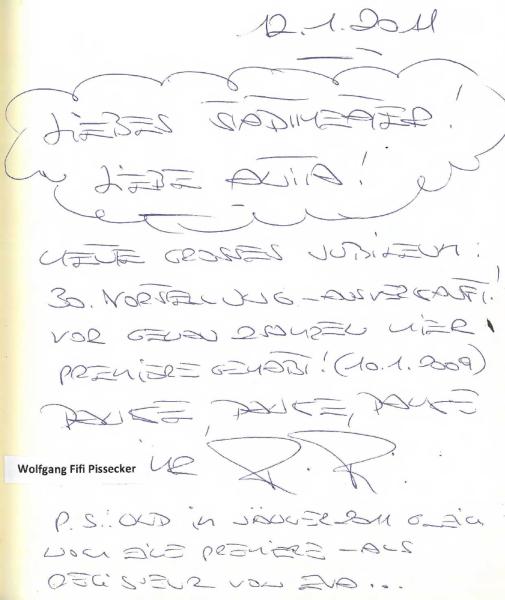 12.1.2011
LIEBES STADTTHEATER!
LIEBE ANITA!
HEUTE GROSSES JUBILEUM:
30. VORSTELLUNG - AUSVERKAUFT!
VOR GENAU 2 JAHREN HIER
PREMIERE GEHABT! (10.1.2009)
DANKE, DANKE, DANKE
Wolfgang Fifi Pissecker
P.S.: UND IM JÄNNER 2011 GLEICH
NOCH EINE PREMIERE - ALS
REGISSEUR VON EVA...